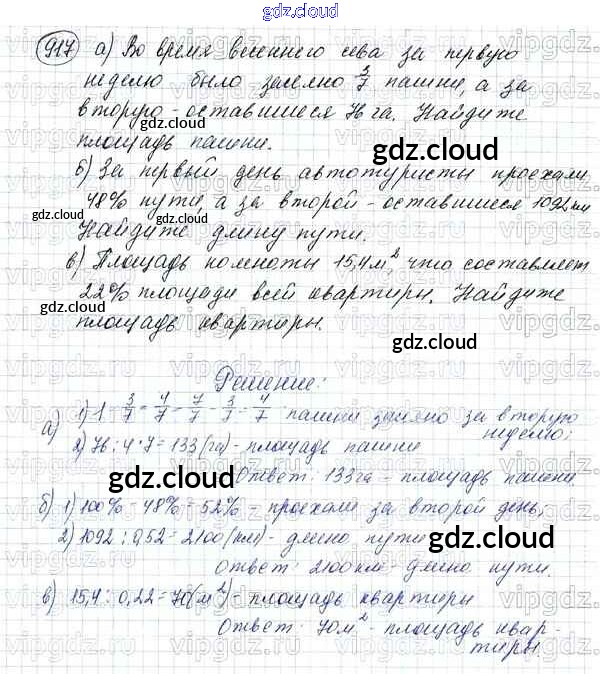 gdz.cloud
917 а) Во время весеннего сева за первую
неделю было засеяно 3/7 пашни, а за
вторую - оставшиеся 76 га. Найдите
площадь пашни.
б) За первый день автотуристы проехали
48% пути, а за второй - оставшиеся 1092 км
Найдите длину пути.
в) Площадь комнаты 15,4 м², что составляет
22% площади всей квартиры. Найдите
площадь квартиры.
Решение:
а) 1) 1 - 3/7 = 4/7 - 7/7 - 3/7 - 4/7 пашни засеяно за вторую
неделю;
2) 76 : 4 · 7 = 133 (га) - площадь пашни
Ответ: 133 га - площадь пашни
б) 1) 100% - 48% = 52% - проехали за второй день,
2) 1092 : 0,52 = 2100 (км) - длина пути
Ответ: 2100 км - длина пути.
в) 15,4 : 0,22 = 70 (м²) - площадь квартиры
Ответ: 70 м² - площадь квар-
тиры.